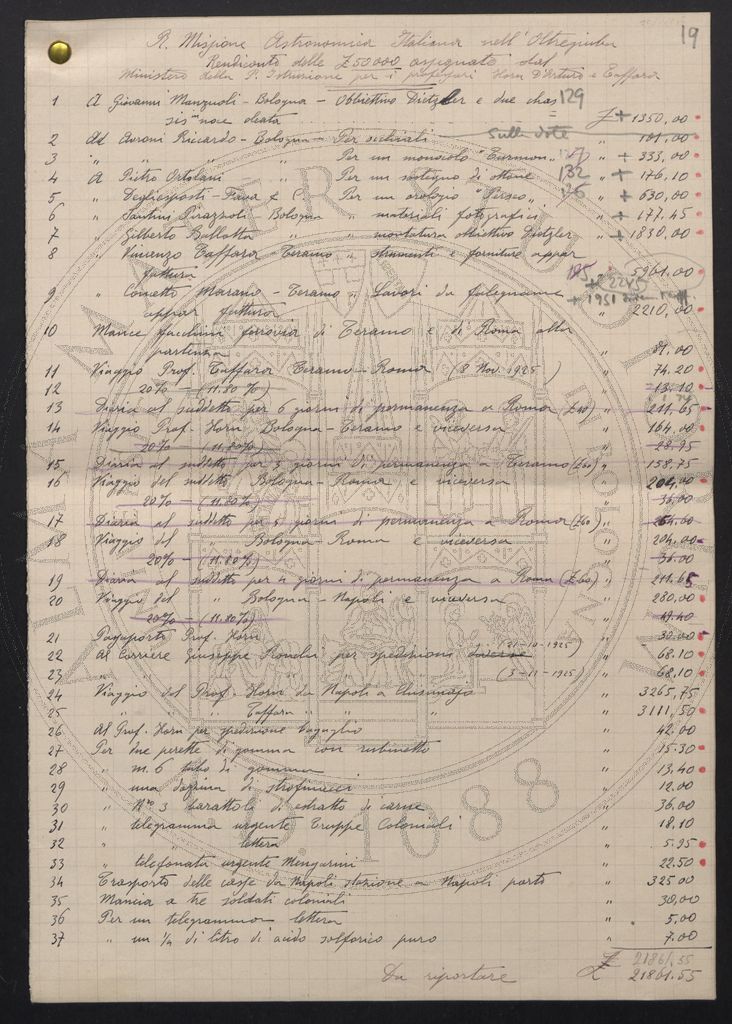 19
R. Missione Astronomica Italiana nell'Oltregiuba
Rendiconto delle £ 50000 assegnate dal
Ministero della P. Istruzione per i professori Horn D'Arturo e Taffara
1 A Giovanni Manzuoli - Bologna - Obbiettivo Dietzler e due 129
£ + 1350,00
2 Ad Avroni Riccardo - Bologna - Per sulla dote 101.00
3 " " " " Per un monocolo " + 333,00
4 A Pietro Ortolani - " Per un sostegno di ottone 132 " + 176,10
5 " Degliesposti - Fiava & C. Per un orologio "Perseo" 126 " + 630,00
6 " Santini Pirazzoli Bologna " materiali fotografici " + 177.45
7 " Gilberto Ballotta " " montatura obiettivo Dietzler " + 1830.00
8 " Vincenzo Taffara - Teramo " strumenti e forniture appar
fattura 5961.00
+ 2245
9 " Cometto Marano - Teramo " Lavori da falegname + 1951
appar fattura " 2210,00
10 Mance facchini ferrovia di Teramo e di Roma alla
partenza " 31,00
11 Viaggio Prof. Taffara Teramo - Roma (8 Nov. 1925) " 74.20
12 20% - (11.80%) " 13.10
13 Diaria al suddetto per 6 giorni di permanenza a Roma (£40) " 211,65
14 Viaggio Prof. Horn Bologna - Teramo e viceversa " 164,00
20% - (11.80%) " 28.95
15 Diaria al suddetto per 3 giorni di permanenza a Teramo (£60) " 158.75
16 Viaggio del suddetto Bologna - Roma e viceversa " 204,00
20% - (11.80%) " 36,00
17 Diaria al suddetto per 5 giorni di permanenza a Roma (£60) " 264.00
18 Viaggio del " Bologna - Roma e viceversa " 204.00
20% - (11.80%) " 36.00
19 Diaria al suddetto per 4 giorni di permanenza a Roma (£60) " 211.65
20 Viaggio del " Bologna - Napoli e viceversa " 280,00
20% - (11.80%) " 49.40
21 Passaporto Prof. Horn " 30.00
22 Al Corriere Giuseppe per spedizioni diverse (21-10-1925) " 68.10
23 " " " (3-11-1925) " 68,10
24 Viaggio del Prof. Horn da Napoli a Chisimajo " 3265,75
25 " " " Taffara " " " " 3111,50
26 Al Prof. Horn per spedizione bagaglio " 42.00
27 Per due perette di gomma con rubinetto " 15.30
28 " m. 6 tubo di gomma " 13,40
29 " una dozzina di strofinacci " 12.00
30 " N° 3 barattoli di estratto di carne " 36,00
31 " telegramma urgente Truppe Coloniali " 18,10
32 " " lettera " 5.95
33 " telefonata urgente Mengarini " 22.50
34 Trasporto delle casse da Napoli stazione a Napoli porto " 325 00
35 Mancia a tre soldati coloniali " 30,00
36 Per un telegramma lettera " 5,00
37 " un ¼ di litro di acido solforico puro " 7.00
£ 21861.55
Da riportare £ 21861.55
ALMA MATER STUDIORUM
A.D. 1088